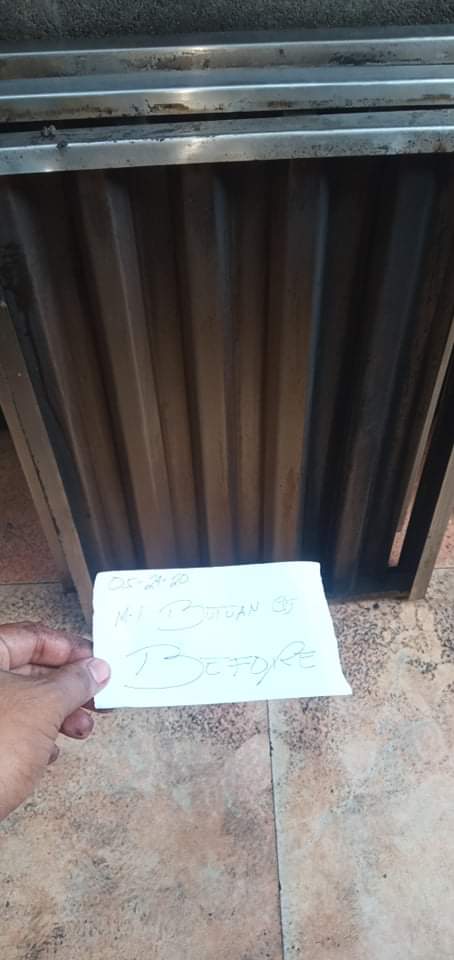 05-29-20
M-1 BUTUAN
BEFORE